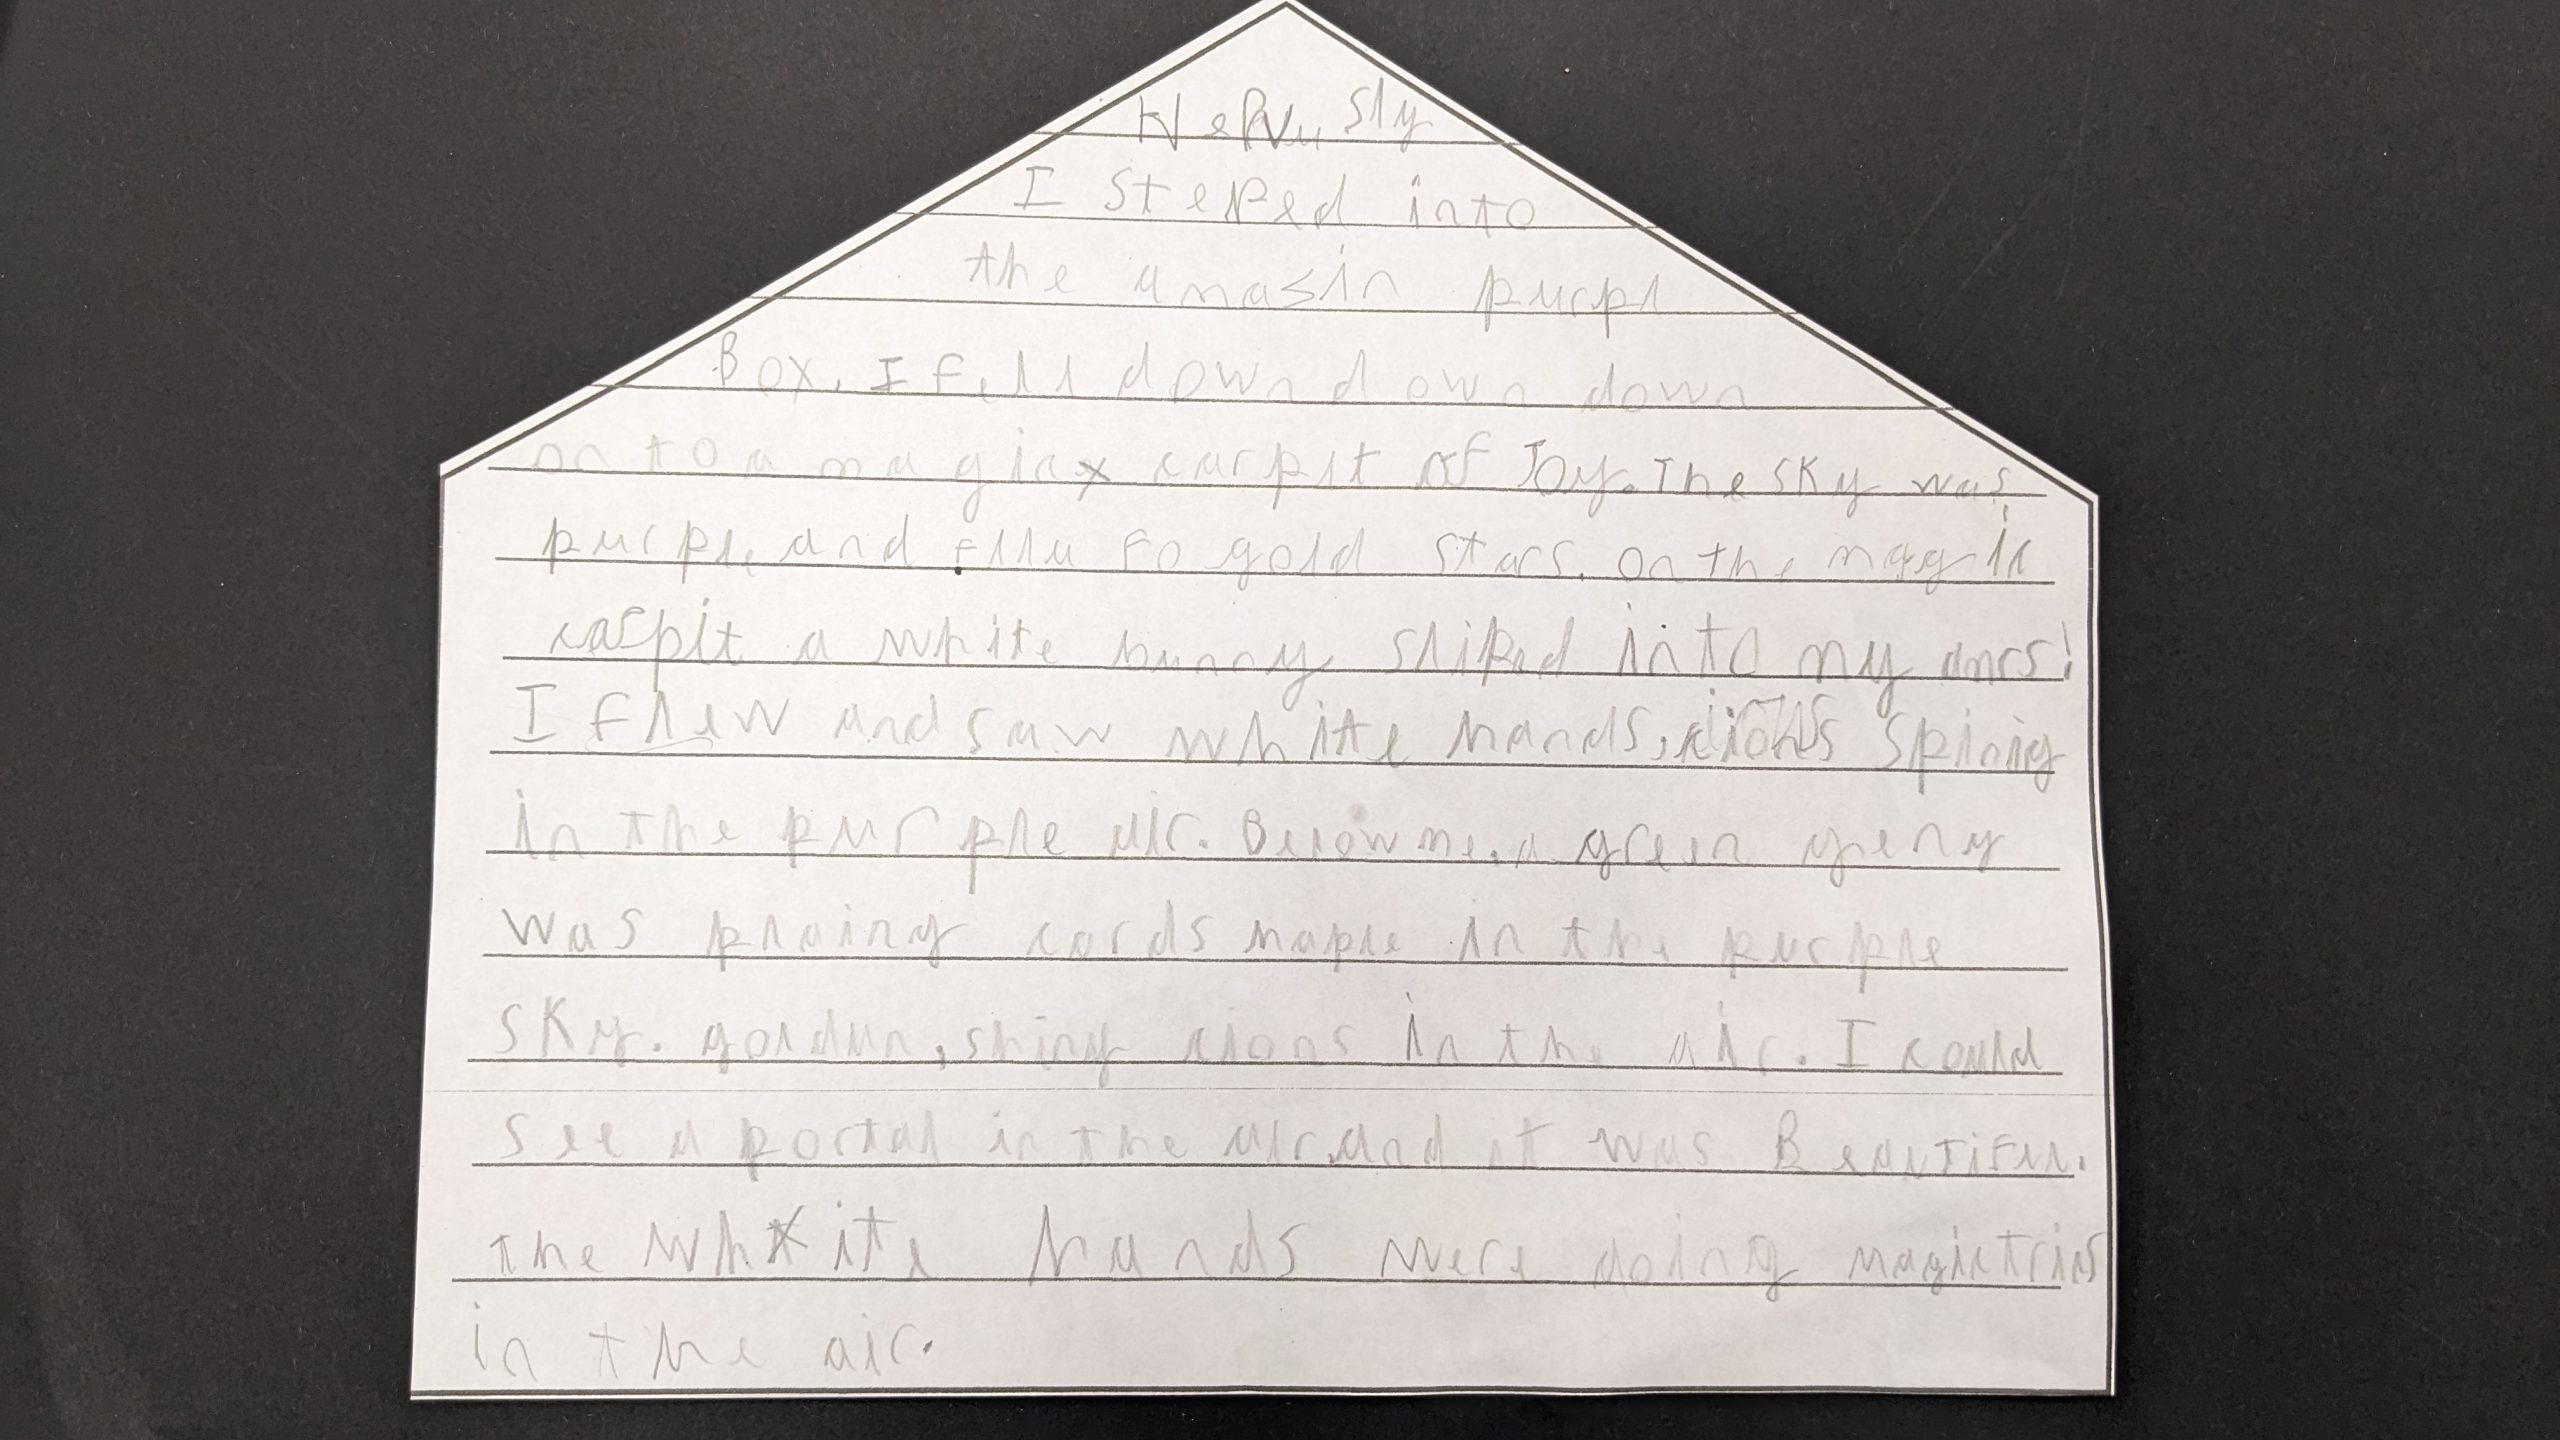 Nervusly
I steped into
the amasin purpl
Box. I fell down down down
on to a magic carpit of Joy. The sky was
purple and fllu fo gold stars. on the magic
carpit a white bunny sliped into my amrs!
I flew and saw white hands, cions spinig
in the purple air. Below me. a green geny
was plaing cards maple in the purple
sky. goldun, shiny cions in the air. I could
see a portal in the air and it was Beautiful.
the white hands were doing magic trics
in the air.